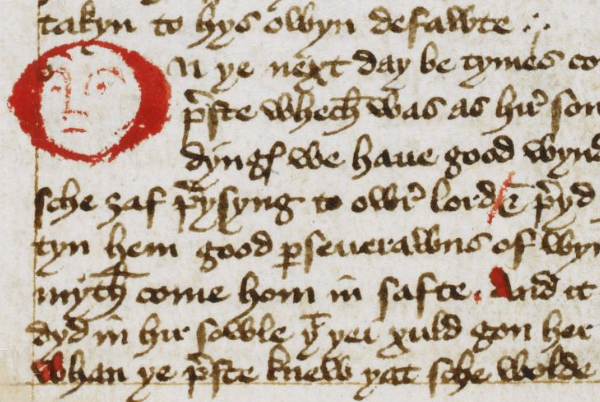 takyn to hys owyn defawte
On ye next day be tymes co
p̃ste whech was as hir̃ son
dyngꝭ we haue good wynd
sche zaf p̃ysyng to owr̃ lord & p̃yd
tyn hem good ꝑseuerawns of wyn
myth come hom in safte. And it
dyd in hir sowle yͭ yei xuld gon her
whan ye p̃ste knew yat sche wolde